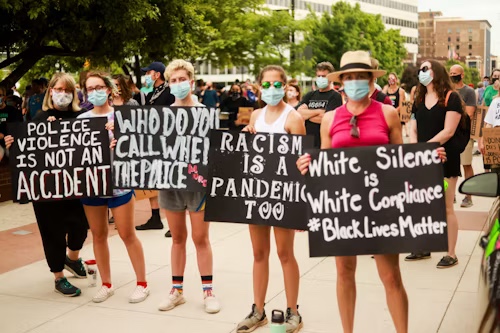 POLICE
VIOLENCE
IS NOT AN
ACCIDENT
WHO DO YOU
CALL WHEN
THE POLICE
RACISM
IS A
PANDEMIC
TOO
White Silence
is
White Compliance
#Black Lives Matter